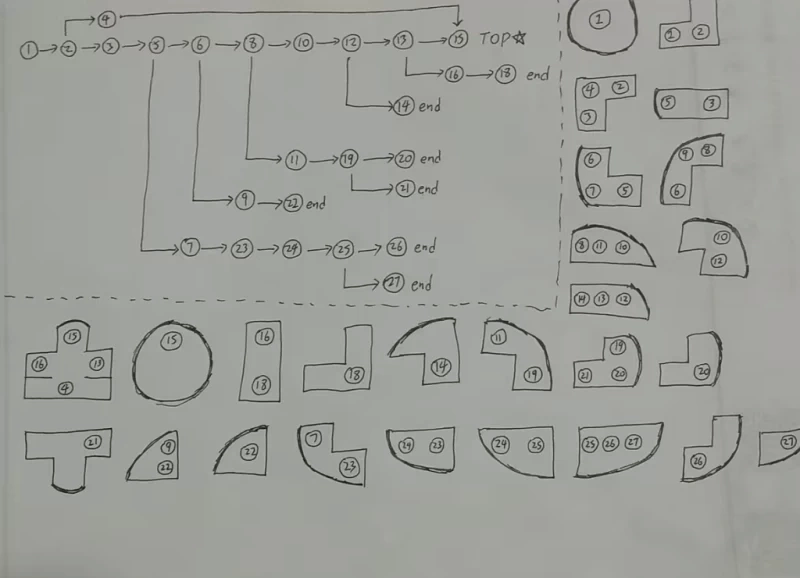 ④
① ② ③ ⑤ ⑥ ⑧ ⑩ ⑫ ⑬ ⑮ TOP☆
⑯ ⑱ end
⑭ end
⑪ ⑲ ⑳ end
㉑ end
⑨ ㉒ end
⑦ ㉓ ㉔ ㉕ ㉖ end
㉗ end
①
② ②
④ ②
③
⑤ ③
⑥
⑦ ⑤
⑨ ⑧
⑥
⑧ ⑪ ⑩
⑩
⑫
⑭ ⑬ ⑫
⑮
⑯ ⑬
④
⑮
⑯
⑱
⑱
⑭
⑪
⑲
⑲
㉑ ⑳
⑳
㉑
⑨
㉒
㉒
⑦
㉓
㉔ ㉓
㉔ ㉕
㉕ ㉖ ㉗
㉖
㉗